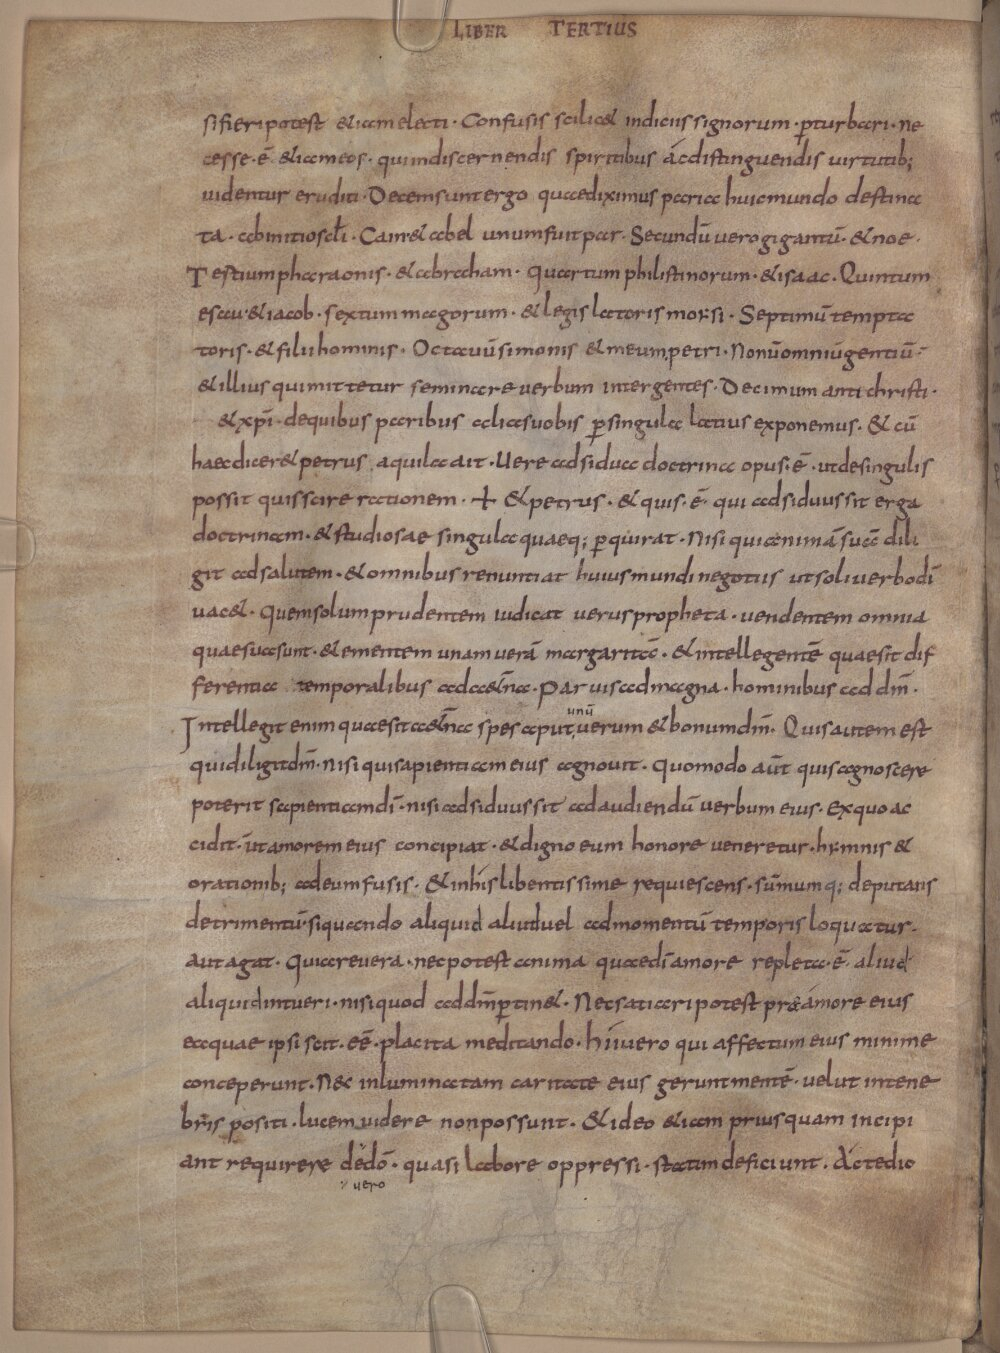 LIBER TERTIUS
si fieri potest & iam electi · Confusis scilic& indiciis signorum · p̲turbari · ne
cesse · ē · & iam eos · qui in discernendis spiritibus ác distinguendis uirtutib;
uidentur eruditi · Decem sunt ergo quae diximus paria huic mundo destina
ta · ab initio scłi · Cain & abel unum fuit par · Secundū uero gigantū · & noe ·
Testium pharaonis · & abraham · Quartum philistinorum · & isaac · Quintum
esau · & iacob · sextum magorum · & legis latoris mosi · Septimū tempta
toris · & filii hominis · Octauū simonis & meum, petri · Nonū omniū gentiū ·
& illius qui mittetur seminare uerbum inter gentes · Decimum antichristi ·
& xp̄i · de quibus paribus alias uobis p̲ singula latius exponemus · & cū
haec dicer& petrus aquila ait · Uere adsidua doctrina opus · ē · ut de singulis
possit quis scire rationem · + & petrus · & quis · ē · qui adsiduus sit erga
doctrinam · & studiosae singula quaeq; p̲quirat · Nisi qui animā suā dili
git ad salutem · & omnibus renuntiat huius mundi negotiis ut soli uerbo dī
uac& · Quem solum prudentem iudicat uerus propheta · uendentem omnia
quae sua sunt · & ementem unam uerā margaritā · & intellegentē quae sit dif
ferentia temporalibus ad a&na · Paruis ad magna · hominibus ad dm̄ ·
Intellegit enim quae sit a&na spes aput unū uerum & bonum dm̄ · Quis autem est
qui diligit dm̄ · nisi qui sapientiam eius agnouit · Quomodo aūt quis agnoscere
poterit sapientiam dī · nisi adsiduus sit ad audiendū uerbum eius · Ex quo ac
cidit · ut amorem eius concipiat · & digno eum honore ueneretur · hymnis &
orationib; ad eum fusis · & in his libentissime requiescens · sūmumq; deputans
detrimentū · si quando aliquid aliud uel ad momentū temporis loquatur ·
aut agat · Quia reuera · nec potest anima quae dī amore repleta · ē · aliud
aliquid intueri · nisi quod ad dm̄ p̲tin& · Nec satiari potest præ amore eius
ea quae ipsi scit · eē · placita meditando · hii uero qui affectum eius minime
conceperunt · Nec inluminatam caritate eius gerunt mentē · uelut in tene
bris positi · lucem uidere non possunt · & ideo & iam priusquam incipi
ant requirere de dō · quasi labore oppressi · statim deficiunt · Ac tedio
uero